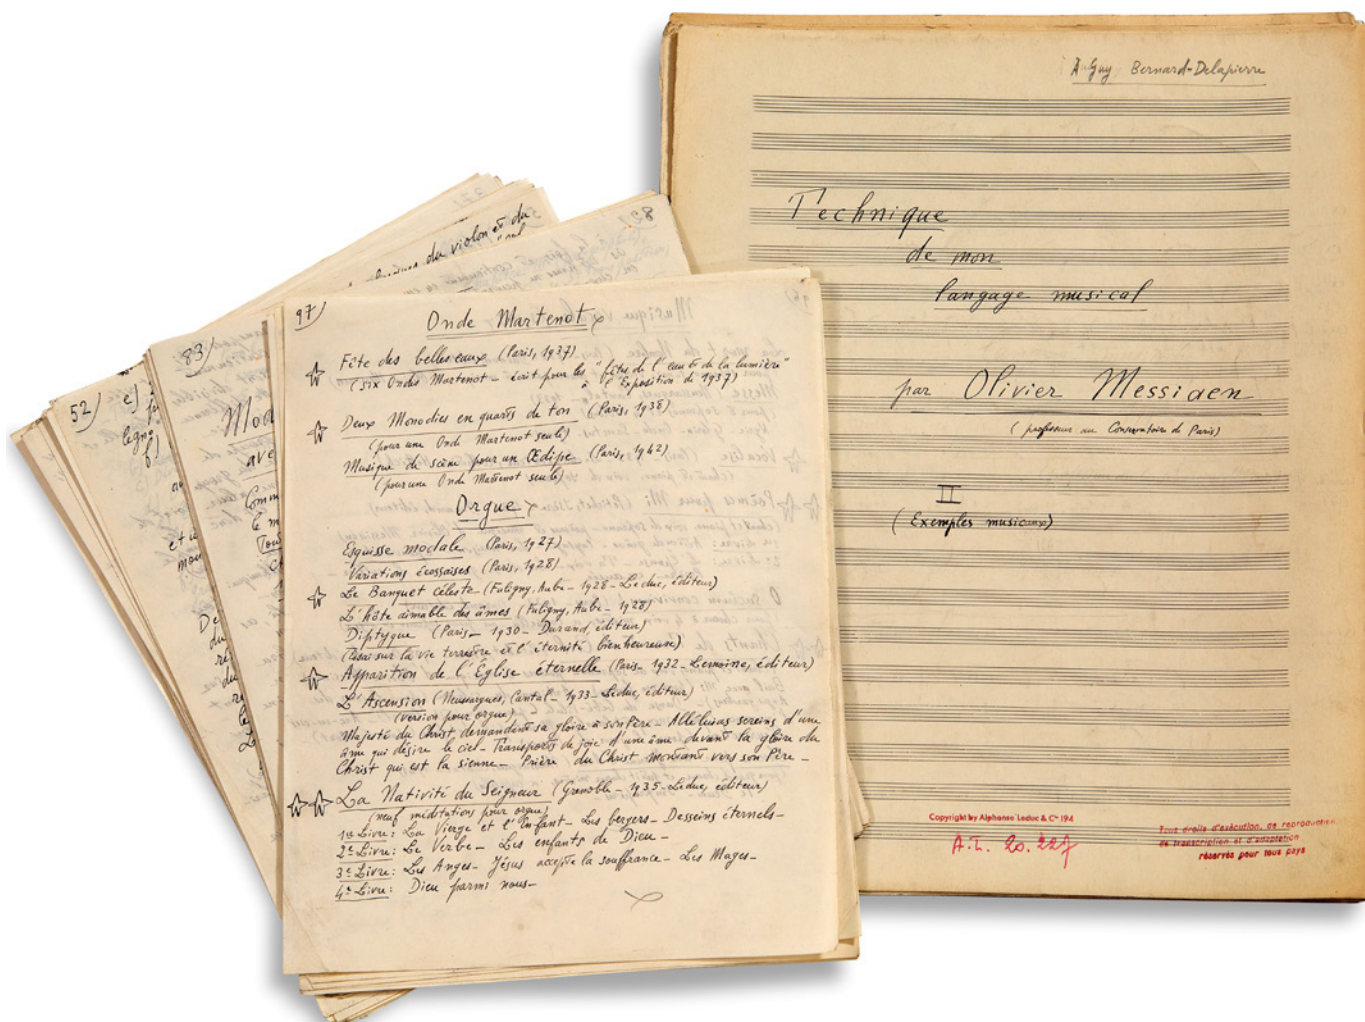 97)
Onde Martenot
Fête des belles eaux (Paris, 1937)
(six Ondes Martenot - écrit pour les "fêtes de l'eau et de la lumière"
à l'Exposition de 1937)
Deux Monodies en quarts de ton (Paris, 1938)
(pour une Onde Martenot seule)
Musique de scène pour un Œdipe (Paris, 1942)
(pour une Onde Martenot seule)
Orgue
Esquisse modale (Paris, 1927)
Variations écossaises (Paris, 1928)
Le Banquet céleste (Fuligny, Aube - 1928 - Leduc, éditeur)
L'hôte aimable des âmes (Fuligny, Aube - 1928)
Diptyque (Paris - 1930 - Durand, éditeur)
(essai sur la vie terrestre et l'éternité bienheureuse)
Apparition de l'Église éternelle (Paris - 1932 - Lemoine, éditeur)
L'Ascension (Neussargues, Cantal - 1933 - Leduc, éditeur)
(version pour orgue)
Majesté du Christ demandant sa gloire à son Père - Alléluias sereins d'une
âme qui désire le ciel - Transports de joie d'une âme devant la gloire du
Christ qui est la sienne - Prière du Christ montant vers son Père -
La Nativité du Seigneur (Grenoble - 1935 - Leduc, éditeur)
(neuf méditations pour orgue)
1er Livre: La Vierge et l'Enfant - Les bergers - Desseins éternels -
2e Livre: Le Verbe - Les enfants de Dieu -
3e Livre: Les Anges - Jésus accepte la souffrance - Les Mages -
4e Livre: Dieu parmi nous -
83)
Mod
ave
52)
e)
f)
du violon et du
A Guy Bernard-Delapierre
Technique
de mon
langage musical
par Olivier Messiaen
(professeur au Conservatoire de Paris)
II
(Exemples musicaux)
Copyright by Alphonse Leduc & Cie 194
A.L. 20.227
Tous droits d'exécution, de reproduction,
de transcription et d'adaptation
réservés pour tous pays